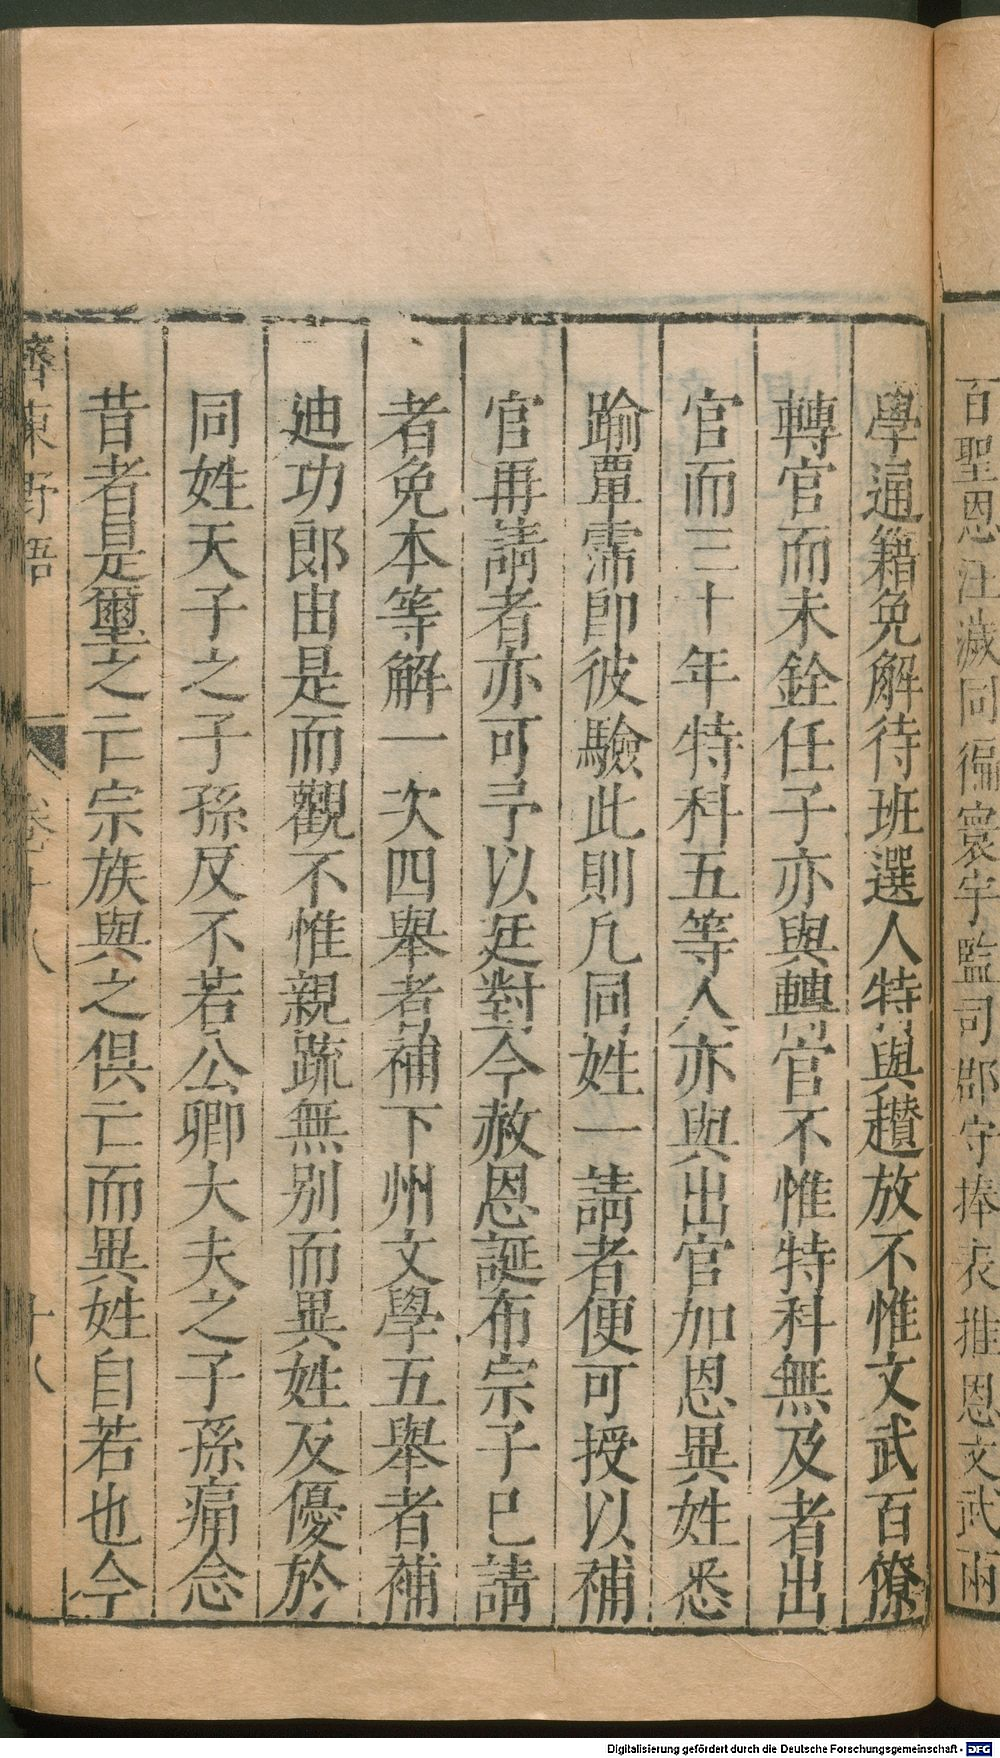 百聖恩汪濊同徧寰宇監司郡守捧表推恩文武兩
學通籍免解待班選人特與趲放不惟文武百僚
轉官而未銓任子亦與轉官不惟特科無及者出
官而三十年特科五等人亦與出官加恩異姓悉
踰覃霈即彼驗此則凡同姓一請者便可授以補
官再請者亦可予以廷對今赦恩誕布宗子已請
者免本等解一次四舉者補下州文學五舉者補
迪功郎由是而觀不惟親䟽無别而異姓反優於
同姓天子之子孫反不若公卿大夫之子孫痛念
昔者是璽之亡宗族與之俱亡而異姓自若也今
齊東野語 卷十八 十八
Digitalisierung gefördert durch die Deutsche Forschungsgemeinschaft - DFG